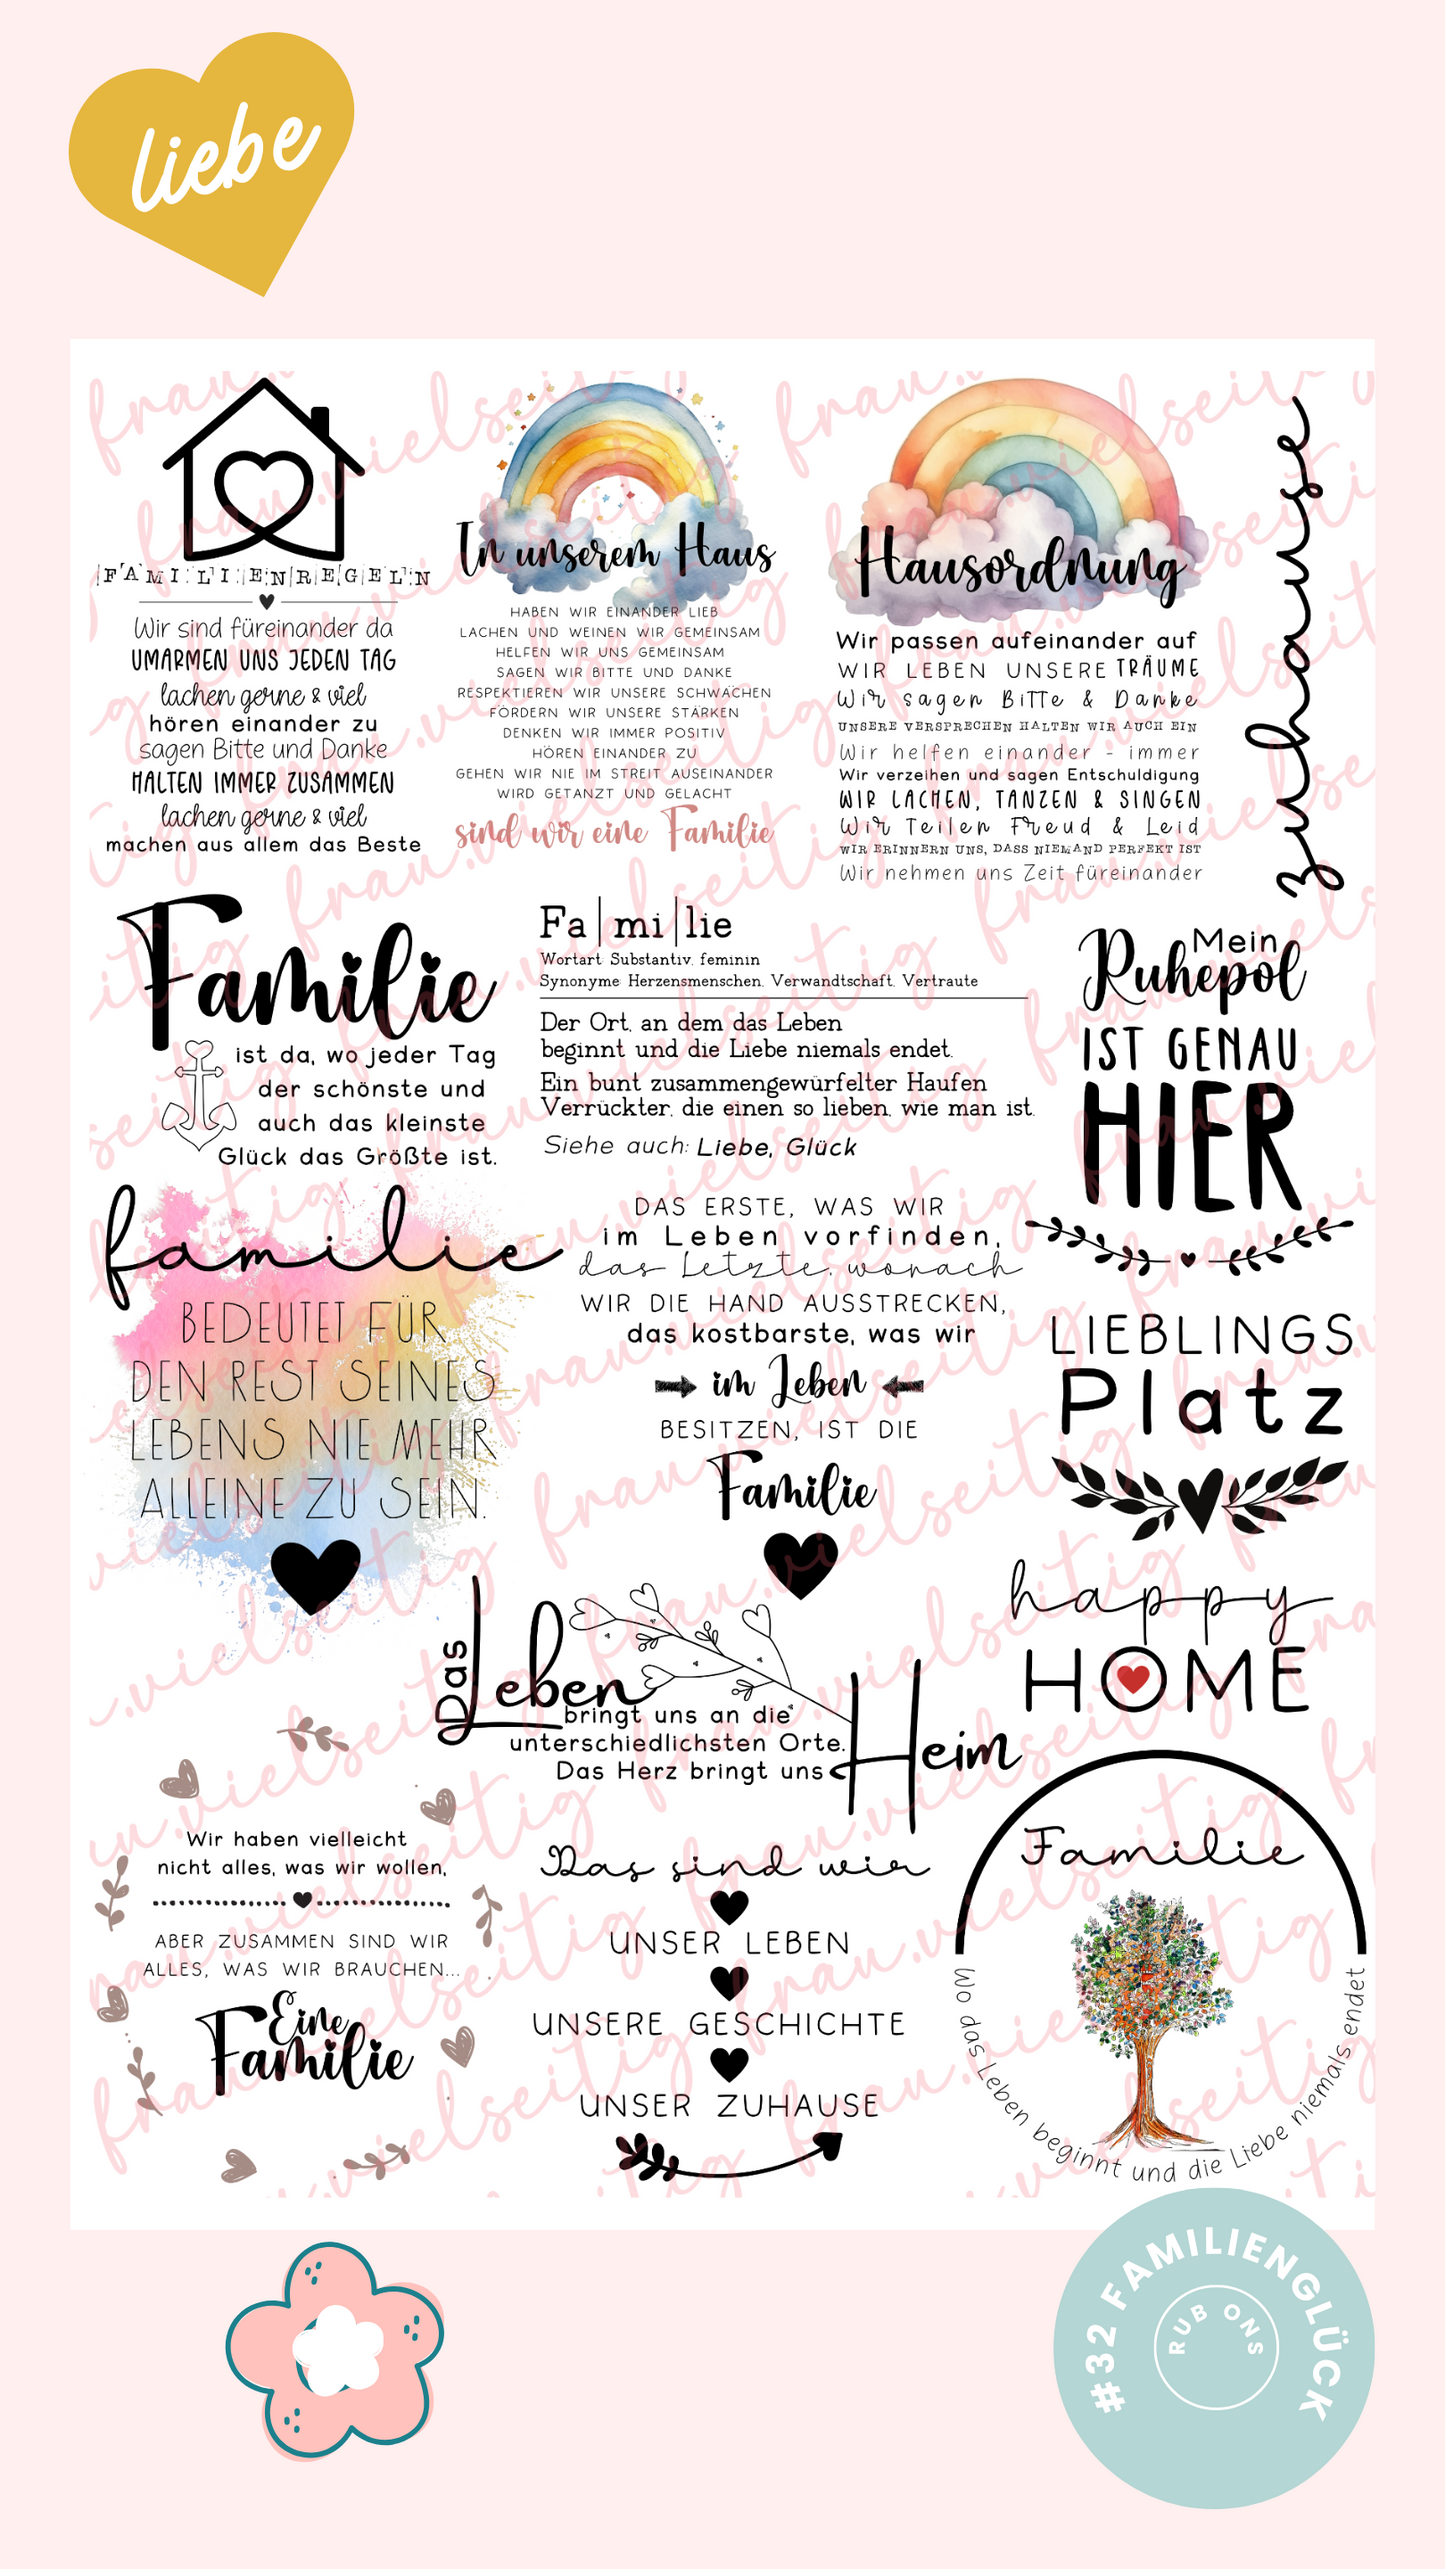 liebe
FAMILIENREGELN
Wir sind füreinander da
UMARMEN UNS JEDEN TAG
lachen gerne & viel
hören einander zu
sagen Bitte und Danke
HALTEN IMMER ZUSAMMEN
lachen gerne & viel
machen aus allem das Beste
In unserem Haus
HABEN WIR EINANDER LIEB
LACHEN UND WEINEN WIR GEMEINSAM
HELFEN WIR UNS GEMEINSAM
SAGEN WIR BITTE UND DANKE
RESPEKTIEREN WIR UNSERE SCHWÄCHEN
FÖRDERN WIR UNSERE STÄRKEN
DENKEN WIR IMMER POSITIV
HÖREN EINANDER ZU
GEHEN WIR NIE IM STREIT AUSEINANDER
WIRD GETANZT UND GELACHT
sind wir eine Familie
Hausordnung
Wir passen aufeinander auf
WIR LEBEN UNSERE TRÄUME
Wir sagen Bitte & Danke
UNSERE VERSPRECHEN HALTEN WIR AUCH EIN
Wir helfen einander - immer
Wir verzeihen und sagen Entschuldigung
WIR LACHEN, TANZEN & SINGEN
Wir Teilen Freud & Leid
WIR ERINNERN UNS, DASS NIEMAND PERFEKT IST
Wir nehmen uns Zeit füreinander
zuhause
Familie
ist da, wo jeder Tag
der schönste und
auch das kleinste
Glück das Größte ist.
Fa|mi|lie
Wortart: Substantiv, feminin
Synonyme: Herzensmenschen, Verwandtschaft, Vertraute
Der Ort, an dem das Leben
beginnt und die Liebe niemals endet.
Ein bunt zusammengewürfelter Haufen
Verrückter, die einen so lieben, wie man ist.
Siehe auch: Liebe, Glück
Mein
Ruhepol
IST GENAU
HIER
familie
BEDEUTET FÜR
DEN REST SEINES
LEBENS NIE MEHR
ALLEINE ZU SEIN.
DAS ERSTE, WAS WIR
im Leben vorfinden,
das Letzte, wonach
WIR DIE HAND AUSSTRECKEN,
das kostbarste, was wir
im Leben
BESITZEN, IST DIE
Familie
LIEBLINGS
Platz
happy
HOME
Das Leben
bringt uns an die
unterschiedlichsten Orte.
Das Herz bringt uns
Heim
Wir haben vielleicht
nicht alles, was wir wollen,
ABER ZUSAMMEN SIND WIR
ALLES, WAS WIR BRAUCHEN...
Eine
Familie
Das sind wir
UNSER LEBEN
UNSERE GESCHICHTE
UNSER ZUHAUSE
Familie
Wo das Leben beginnt und die Liebe niemals endet
frau.vielseitig
#32 FAMILIENGLÜCK
RUB ONS